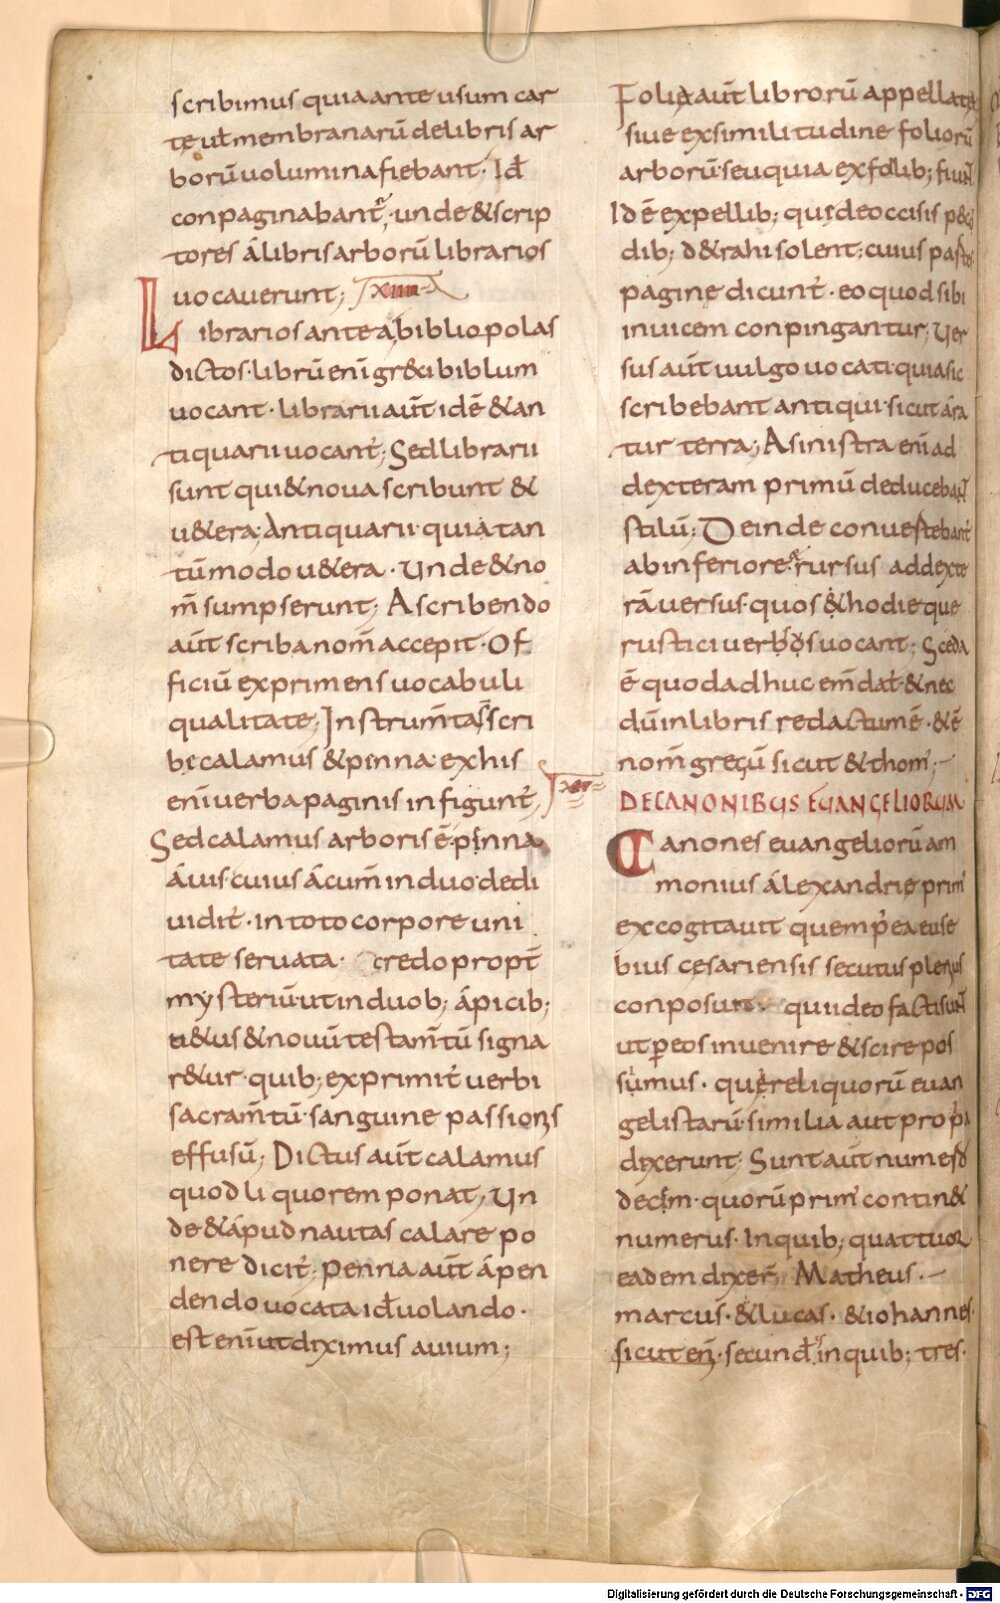 scribimus quia ante usum car
tę uł membranarū delibris ar
borū uolumina fiebant· Id
conpaginabant· unde & scrip
tores á libris arborū librarios
uocauerunt; XIIII
Librarios ante a bibliopolas
dictos· librū enī gr&ci biblum
uocant· librarii aūt idē & an
tiquarii uocant̓; Sed librarii
sunt qui & noua scribunt &
u&era; Antiquarii· quia tan
tūmodo u&era· Unde & no
m̄ sumpserunt; A scribendo
aūt scriba nom̄ accepit· Of
ficiū exprimens uocabuli
qualitate; Instrum̄ta scri
be calamus & pinna· ex his
enī uerba paginis infigunt̓; XV
Sed calamus arboris ē· pinna
áuis· cuius ácum̄ induo dedi
uidit̓· in toto corpore uni
tate seruata· credo propt̄
mysteriū· ut in duob; ápicib;
u&us & nouū testam̄tū signa
r&ur· quib; exprimit̓ uerbi
sacram̄tū· sanguine passionis
effusū; Dictus aūt calamus
quod liquorem ponat; Un
de & ápud nautas calare po
nere dicit̓; Penna aūt á pen
dendo uocata id uolando·
est enī ut diximus auium;
Folia aūt librorū appellata
siue ex similitudine foliorū
arborū· seu quia ex follib; fiunt
Id ē ex pellib; qui de occisis p&cu
dib; d&rahi solent; cuius partes
paginę dicunt̓· eo quod sibi
inuicem conpingantur; Uer
sus aūt uulgo uocati· quia sic
scribebant antiqui· sicut ára
tur terra; A sinistra enī ad
dexteram primū deducebant
stilū; Deinde conuertebant̓
ab inferiore· rursus ad dexte
rā uersus· quos & hodie que
rustici uersos uocant; Sceda
ē quod adhuc em̄dat̓· & nec
dū in libris redactum ē· & ē
nom̄ grecū sicut & thom̓;
DE CANONIBUS EUANGELIORUM
Canones euangeliorū am
monius álexandrię prim̓
excogitauit quem p̓ ea euse
bius cesariensis secutus plenius
conposuit· qui ideo facti sunt
ut p eos inuenire & scire pos
sumus· quę reliquorū euan
gelistarū· similia aut propa
dixerunt· Sunt aūt num̄
decim· quorū prim̓ contin&
numerus· In quib; quattuor
eadem dixer̄ Matheus·
marcus· & lucas· & iohannes·
sicut en̄· secund in quib; tres·
Digitalisierung gefördert durch die Deutsche Forschungsgemeinschaft - DFG